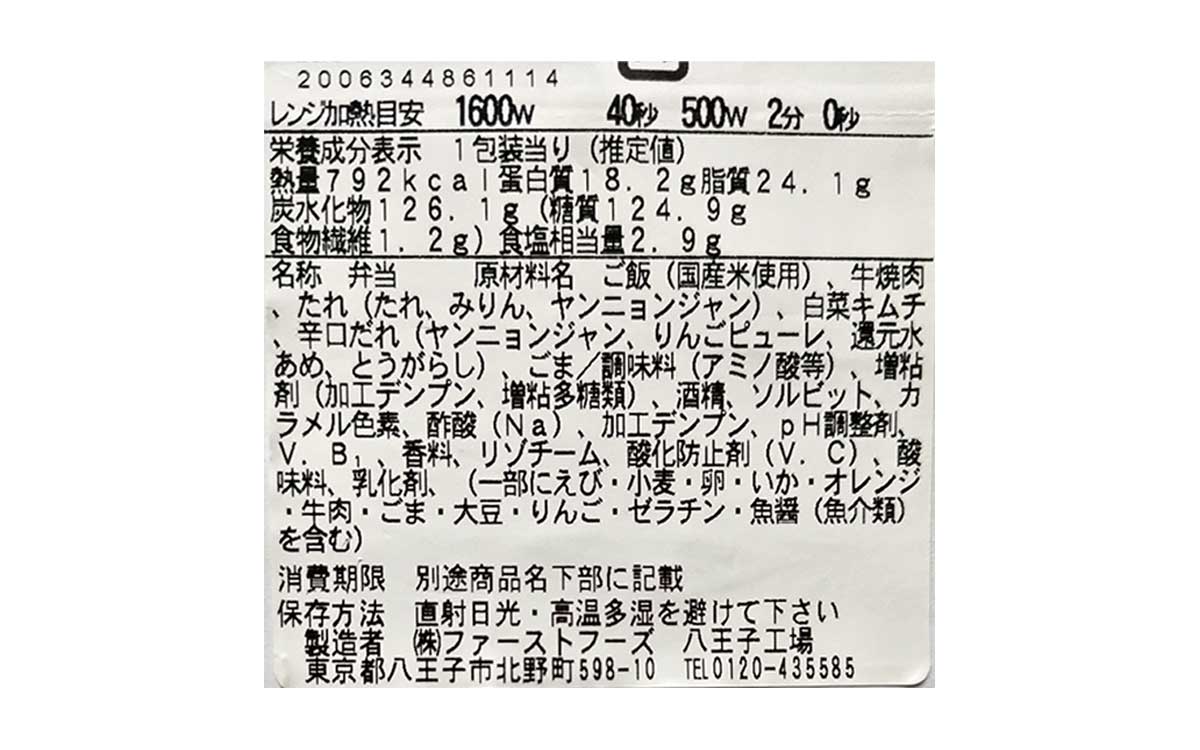 2006344861114
レンジ加熱目安 1600W 40秒 500W 2分 0秒
栄養成分表示 1包装当り(推定値)
熱量792kcal蛋白質18.2g脂質24.1g
炭水化物126.1g(糖質124.9g
食物繊維1.2g)食塩相当量2.9g
名称 弁当 原材料名 ご飯(国産米使用)、牛焼肉
、たれ(たれ、みりん、ヤンニョンジャン)、白菜キムチ
、辛口だれ(ヤンニョンジャン、りんごピューレ、還元水
あめ、とうがらし)、ごま/調味料(アミノ酸等)、増粘
剤(加工デンプン、増粘多糖類)、酒精、ソルビット、カ
ラメル色素、酢酸(Na)、加工デンプン、pH調整剤、
V.B₁、香料、リゾチーム、酸化防止剤(V.C)、酸
味料、乳化剤、(一部にえび・小麦・卵・いか・オレンジ
・牛肉・ごま・大豆・りんご・ゼラチン・魚醤(魚介類)
を含む)
消費期限 別途商品名下部に記載
保存方法 直射日光・高温多湿を避けて下さい
製造者 ㈱ファーストフーズ 八王子工場
東京都八王子市北野町598-10 TEL0120-435585